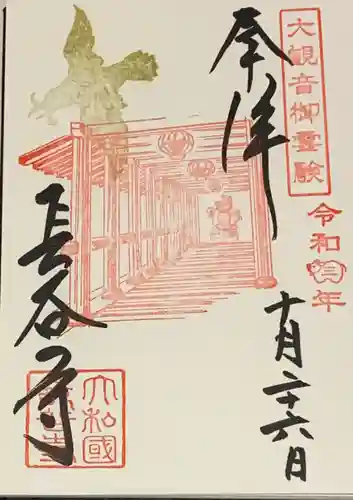 大観音御霊験
奉拝
令和三年
十月二十六日
長谷寺
大和國